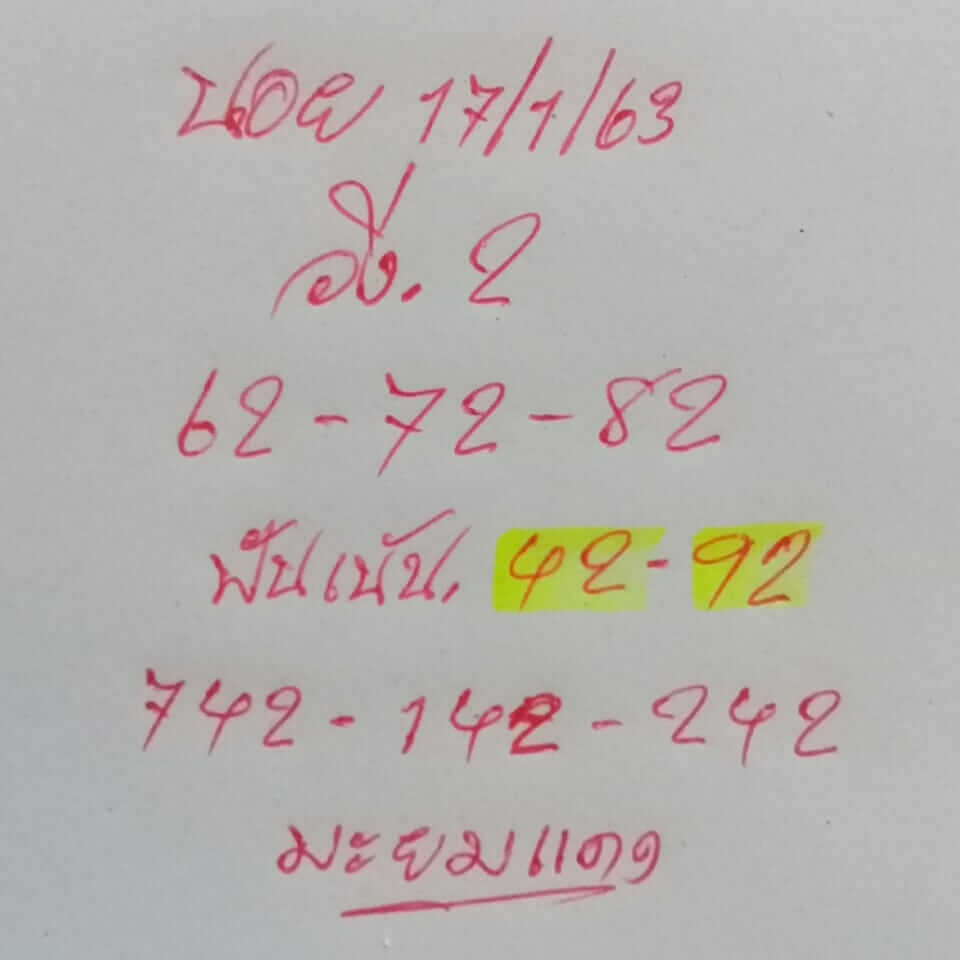 นอย 17/1/63
วิ่ง. 2
62 - 72 - 82
ฟันเน้น. 42 - 92
742 - 142 - 242
มะยมแดง